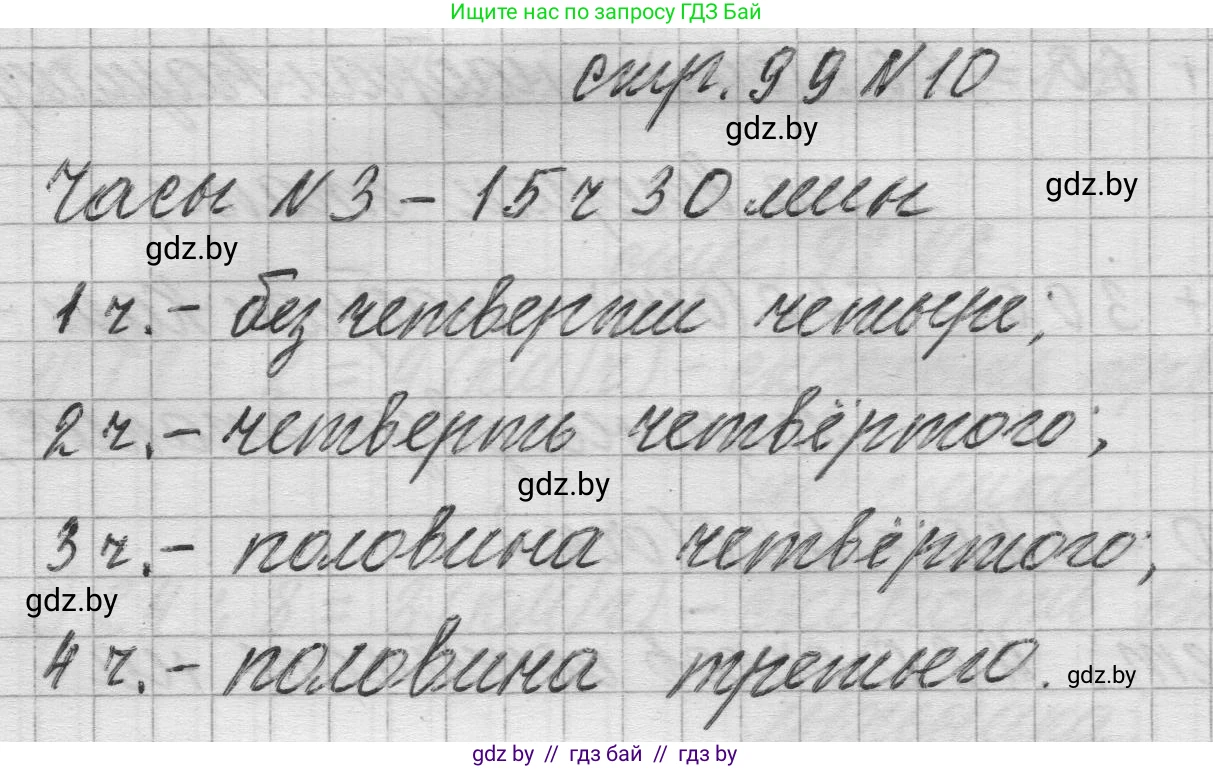 Ищите нас по запросу ГДЗ Бай
стр. 99 N 10
gdz.by
Часы N 3 - 15 ч 30 мин
gdz.by
gdz.by
1 ч. - без четверти четыре;
2 ч. - четверть четвёртого;
gdz.by
3 ч. - половина четвёртого;
gdz.by
4 ч. - половина третьего.
gdz.by
gdz.by // гдз бай // гдз by